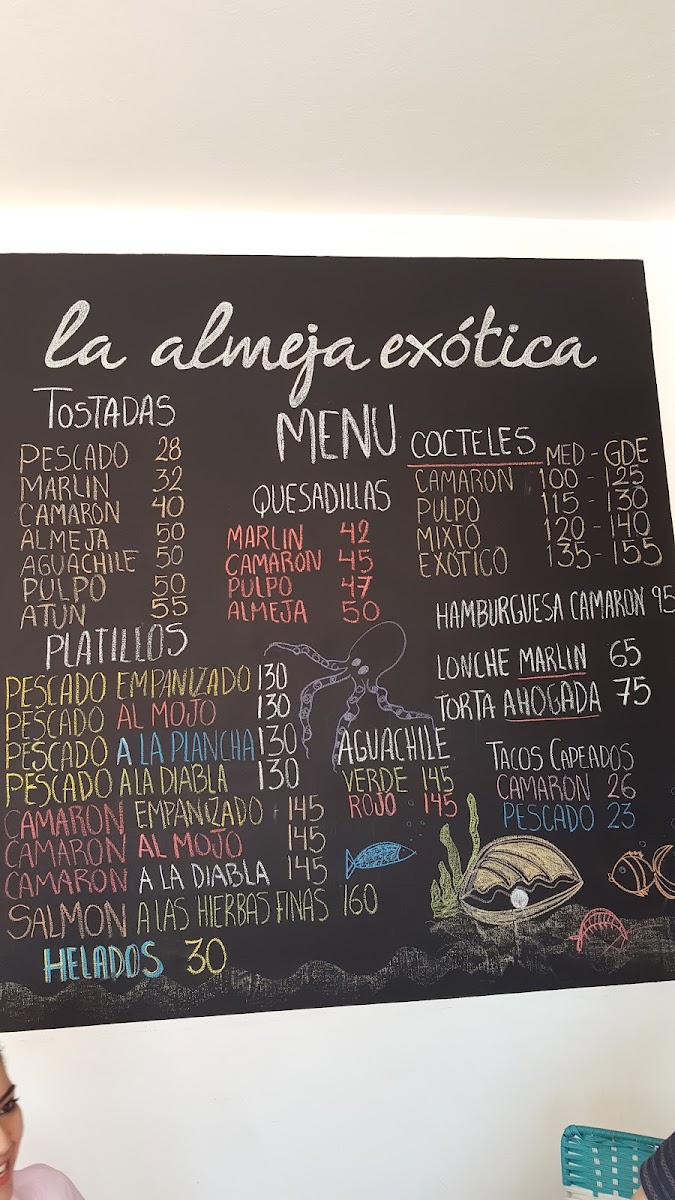 la almeja exótica
MENU
TOSTADAS
PESCADO 28
MARLIN 32
CAMARON 40
ALMEJA 50
AGUACHILE 50
PULPO 50
ATUN 55
PLATILLOS
PESCADO EMPANIZADO 130
PESCADO AL MOJO 130
PESCADO A LA PLANCHA 130
PESCADO A LA DIABLA 130
CAMARON EMPANIZADO 145
CAMARON AL MOJO 145
CAMARON A LA DIABLA 145
SALMON A LAS HIERBAS FINAS 160
HELADOS 30
QUESADILLAS
MARLIN 42
CAMARON 45
PULPO 47
ALMEJA 50
AGUACHILE
VERDE 145
ROJO 145
COCTELES MED - GDE
CAMARON 100 - 125
PULPO 115 - 130
MIXTO 120 - 140
EXÓTICO 135 - 155
HAMBURGUESA CAMARON 95
LONCHE MARLIN 65
TORTA AHOGADA 75
TACOS CAPEADOS
CAMARON 26
PESCADO 23